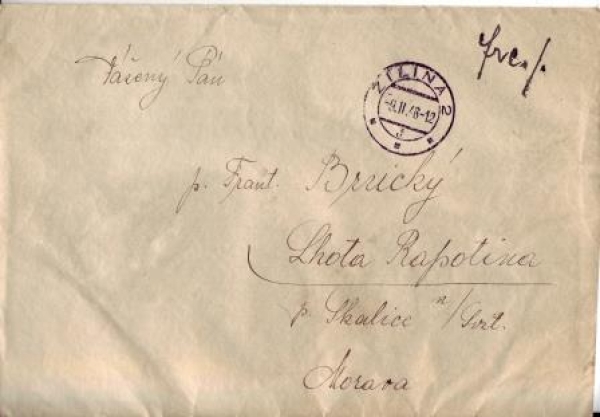 Vážený Pán
frc. /.
ŽILINA 2
-9.II.48-12
J
p. Frant. Brzický
Lhota Rapotina
p. Skalice n/Svit.
Morava